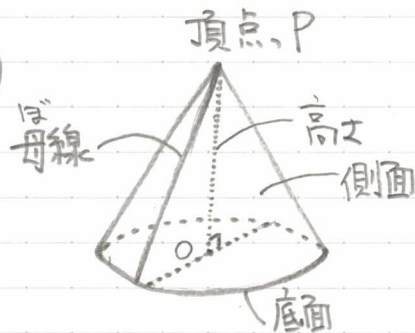 頂点、P
ぼ
母線
高さ
側面
O
底面